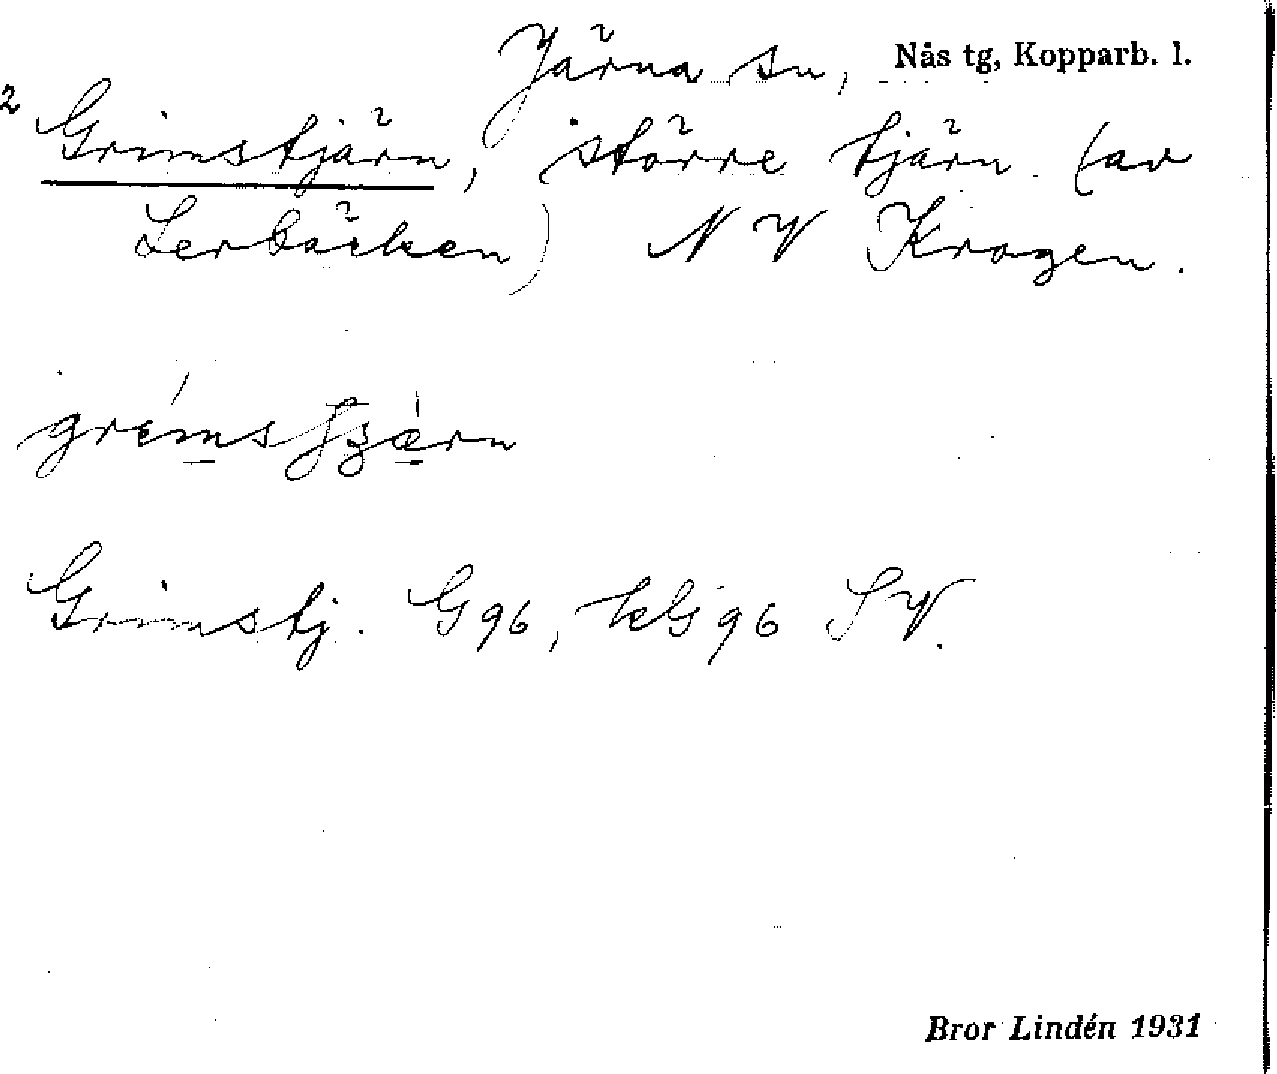 Järna sn, Nås tg, Kopparb. l.
2 Grimstjärn, större tjärn (av
Lerbäcken) NV Kragen.
Grimstj. G 96, kG 96 SV.
Bror Lindén 1931